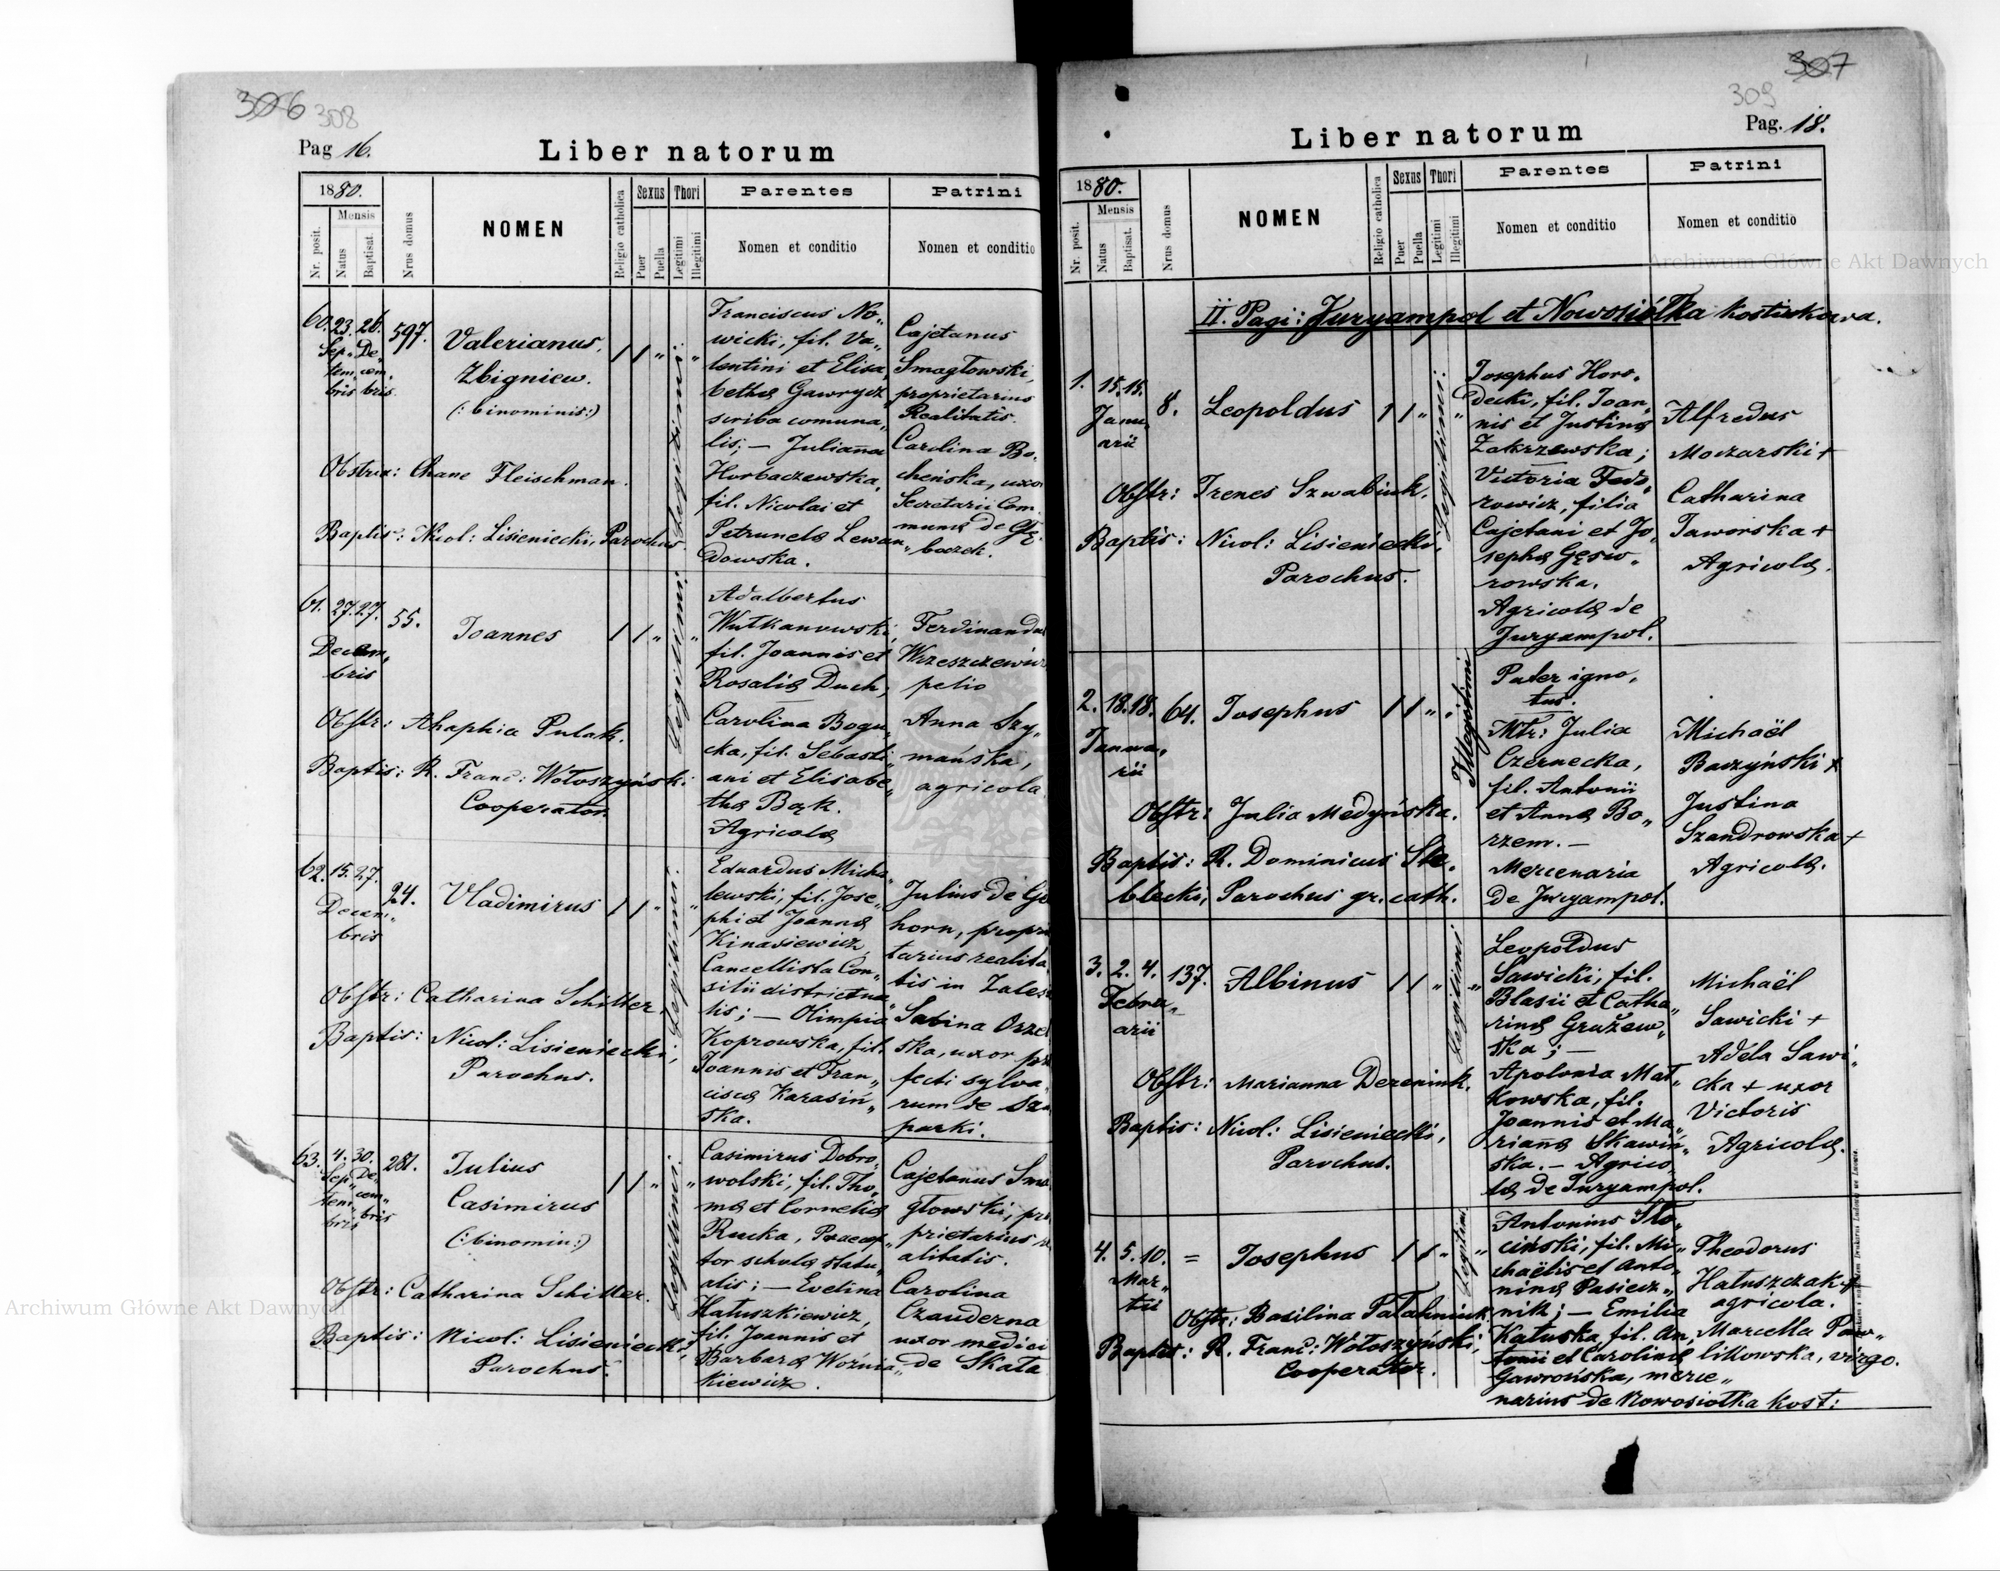 306 308
Pag 16.
Liber natorum
1880.
Mensis
Nr. posit.
Natus
Baptisat.
Nrus domus
NOMEN
Religio catholica
Sexus
Puer
Puella
Thori
Legitimi
Illegitimi
Parentes
Nomen et conditio
Patrini
Nomen et conditio
60. 23. 26. 597.
Sep„ De„
tem„ cem„
bris bris
Valerianus,
Zbigniew.
(: binominis:)
Legitimi:
Obstrix: Chane Fleischman.
Baptis: Nicol: Lisieniecki, Parochus
Franciscus No„
wicki, fil. Va„
lentini et Elisa„
bethæ Gawrycz,
scriba comuna„
lis; — Julianna
Horbaczewska,
fil. Nicolai et
Petrunelæ Lewan„
dowska.
Cajetanus
Smagłowski,
proprietarius
Realitatis.
Carolina Bo„
cheńska, uxor
Secretarii Com„
munæ de Głę„
boczek.
61. 27. 27. 55.
Decem„
bris
Joannes
Legitimi:
Obstr: Ahaphia Pulak.
Baptis: R. Franc: Wołoszyński
Cooperator.
Adalbertus
Wutkanowski,
fil. Joannis et
Rosaliæ Duch;
Carolina Bogu„
cka, fil. Sebasti„
ani et Elisabe„
thæ Bąk.
Agricolæ
Ferdinandus
Wrzeszczewicz
pelio
Anna Szy„
mańska,
agricola
62. 15. 27. 24.
Decem„
bris
Vladimirus
Legitimi:
Obstr: Catharina Schiller
Baptis: Nicol: Lisieniecki,
Parochus.
Eduardus Micha„
lewski, fil. Jose„
phi et Joannæ
Kinasiewicz,
Cancellista Con„
silii districtua„
lis; — Olimpia
Koprowska, fil.
Joannis et Fran„
ciscæ Karasiń„
ska.
Julius de Ge
horn, propri
tarius realita
tis in Zales
Sabina Orze
ska, uxor
fecti sylva„
rum de Sza
parki.
63. 4. 30. 281.
Sep„ De„
tem„ cem„
bris bris
Julius
Casimirus
(: binomin:)
Legitimi:
Obstr: Catharina Schiller.
Baptis: Nicol: Lisieniecki,
Parochus.
Casimirus Dobro„
wolski, fil. Tho„
mæ et Corneliæ
Rucka, Præcep„
tor scholæ statu„
alis; — Evelina
Hatuszkiewicz,
fil. Joannis et
Barbaræ Woźnia„
kiewicz.
Cajetanus Sma
głowski, pro
prietarius re
alitatis.
Carolina
Czauderna
uxor medici
de Skała
307
309
Pag. 18.
Liber natorum
1880.
Mensis
Nr. posit.
Natus
Baptisat.
Nrus domus
NOMEN
Religio catholica
Sexus
Puer
Puella
Thori
Legitimi
Illegitimi
Parentes
Nomen et conditio
Patrini
Nomen et conditio
II. Pagi: Juryampol et Nowosiółka kostiukowa.
1. 15. 15. 8.
Janu„
arii
Leopoldus
Legitimi:
Obstr: Irenes Szwabiuk.
Baptis: Nicol: Lisieniecki,
Parochus.
Josephus Horo„
decki, fil. Joan„
nis et Justinæ
Zakrzewska;
Victoria Fedo„
rowicz, filia
Cajetani et Jo„
sephæ Gęsio„
rowska.
Agricolæ de
Juryampol.
Alfredus
Moczarski +
Catharina
Jaworska +
Agricolæ.
2. 18. 18. 64.
Janua„
rii
Josephus
Illegitimi
Obstr: Julia Medyńska.
Baptis: R. Dominicus Ste„
blecki, Parochus gr. cath.
Pater igno„
tus.
Mtr: Julia
Czernecka,
fil. Antonii
et Annæ Bo„
rzem. —
Mercenaria
de Juryampol.
Michaël
Baczyński +
Justina
Szandrowska +
Agricolæ.
3. 2. 4. 137.
Februa„
arii
Albinus
Legitimi
Obstr: Marianna Dereniuk.
Baptis: Nicol: Lisieniecki,
Parochus.
Leopoldus
Sawicki, fil.
Blasii et Catha„
rinæ Grużew„
ska; —
Apolonia Mat„
kowska, fil.
Joannis et Ma„
riannæ Skawiń„
ska. — Agrico„
læ de Juryampol.
Michaël
Sawicki +
Adela Sawi„
cka + uxor
Victoris
Agricolæ.
4. 5. 10. =
Mar„
tii
Josephus
Legitimi
Obstr: Basilina Patahniuk
Baptis: R. Franc: Wołoszyński,
Cooperator.
Antonius Sło„
ciński, fil. Mi„
chaëlis et Anto„
ninæ Pasiecz„
nik; — Emilia
Katuska, fil. An„
tonii et Carolinæ
Gawrońska, merce„
narius de Nowosiołka kost:
Theodorus
Hatuszczak +
agricola.
Marcella Paw„
likowska, virgo.
Archiwum Główne Akt Dawnych
Archiwum Główne Akt Dawnych